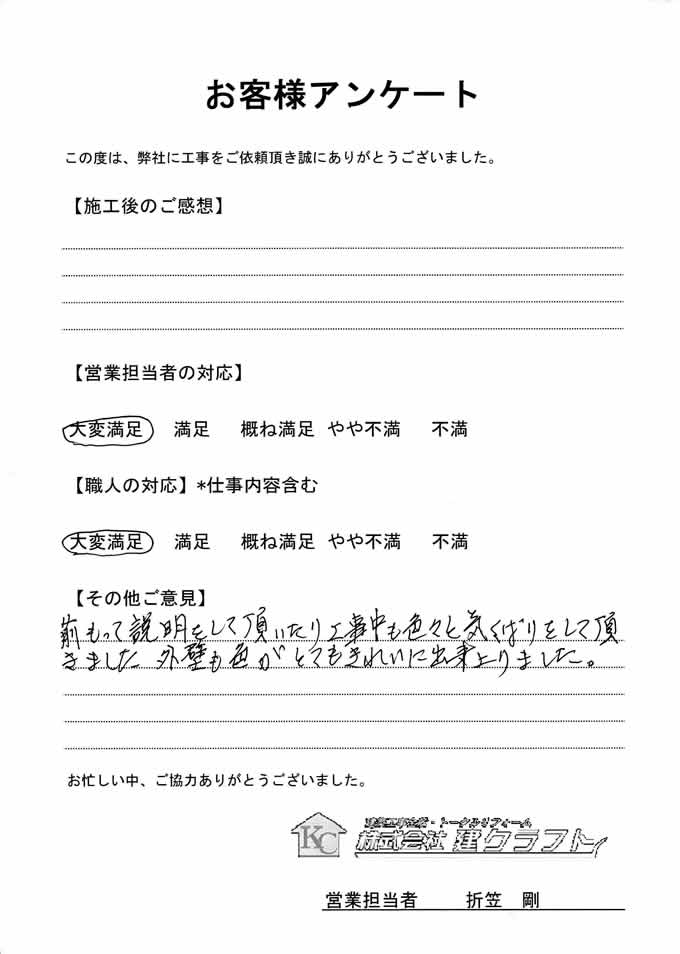 お客様アンケート
この度は、弊社に工事をご依頼頂き誠にありがとうございました。
【施工後のご感想】
【営業担当者の対応】
大変満足 満足 概ね満足 やや不満 不満
【職人の対応】*仕事内容含む
大変満足 満足 概ね満足 やや不満 不満
【その他ご意見】
前もって説明をして頂いたり工事中も色々と気くばりをして頂
きました 外壁も色がとてもきれいに出来上りました。
お忙しい中、ご協力ありがとうございました。
トータルリフォーム
KC 株式会社 建クラフト
営業担当者 折笠 剛